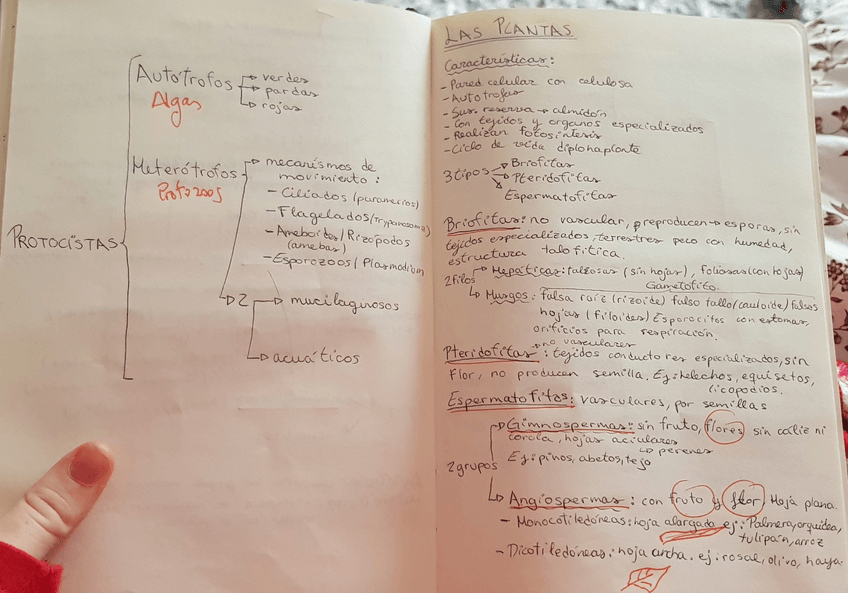 Autótrofos
verdes
pardas
rojas
Algas
Heterótrofos
Protozoos
mecanismos de
movimiento:
- Ciliados (paramecios)
- Flagelados/Trypanosoma)
- Ameboides/Rizópodos
(amebas)
- Esporozoos/Plasmodium
PROTOCISTAS
2
mucilaginosos
acuáticos
LAS PLANTAS
Características:
- Pared celular con celulosa
- Autotrofas
- Sus. reserva → almidón
- Con tejidos y organos especializados
- Realizan fotosintesis
- Ciclo de vida diplohaplonte
3 tipos
Briofitas
Pteridofitas
Espermatofitas
Briofitas: no vascular, reproducen → esporas, sin
tejidos especializados, terrestres pero con humedad,
estructura talofítica.
2 filos
Hepáticas: talosas (sin hojas), foliosas (con hojas)
Gametofito.
Musgos: falsa raíz (rizoide) falso tallo (cauloide) falsas
hojas (filoides) Esporocitos con estomas,
orificios para respiración.
→ no vasculares
Pteridofitas: tejidos conductores especializados, sin
Flor, no producen semilla. Ej: helechos, equisetos,
licopodios.
Espermatofitas: vasculares, por semillas
2 grupos
Gimnospermas: sin fruto, flores sin caliz ni
corola, hojas aciculares
→ perenes
Ej: pinos, abetos, tejo
Angiospermas: con fruto y flor Hoja plana.
- Monocotiledóneas: hoja alargada ej: Palmera, orquidea,
tulipán, arroz
- Dicotiledóneas: hoja ancha. ej: rosal, olivo, haya.